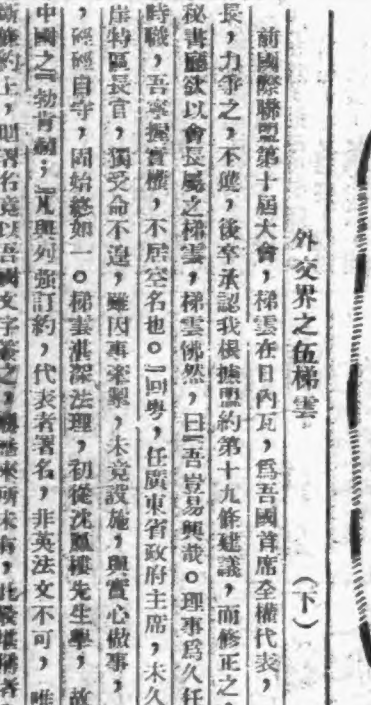 外交界之伍梯雲 (下)
前國際聯盟第十屆大會，梯雲在日內瓦，爲吾國首席全權代表，
長，力爭之，不獲，後卒承認我根據盟約第十九條建議，而修正之。
秘書廳欲以會長屬之梯雲，梯雲怫然，曰『吾豈易與哉。理事爲久任
時職，吾寧握實權，不居空名也。』回粵，任廣東省政府主席，未久
岸特區長官，獨受命不遑，雖因事牽掣，未竟設施，與實心做事，
，硜硜自守，固始終如一。梯雲湛深法理，初從沈鳳樓先生學，故
中國之『勃肯爾；『凡與列强訂約，代表者署名，非英法文不可，唯
約上，則署名竟以吾國文字簽之，歷來所未有，此